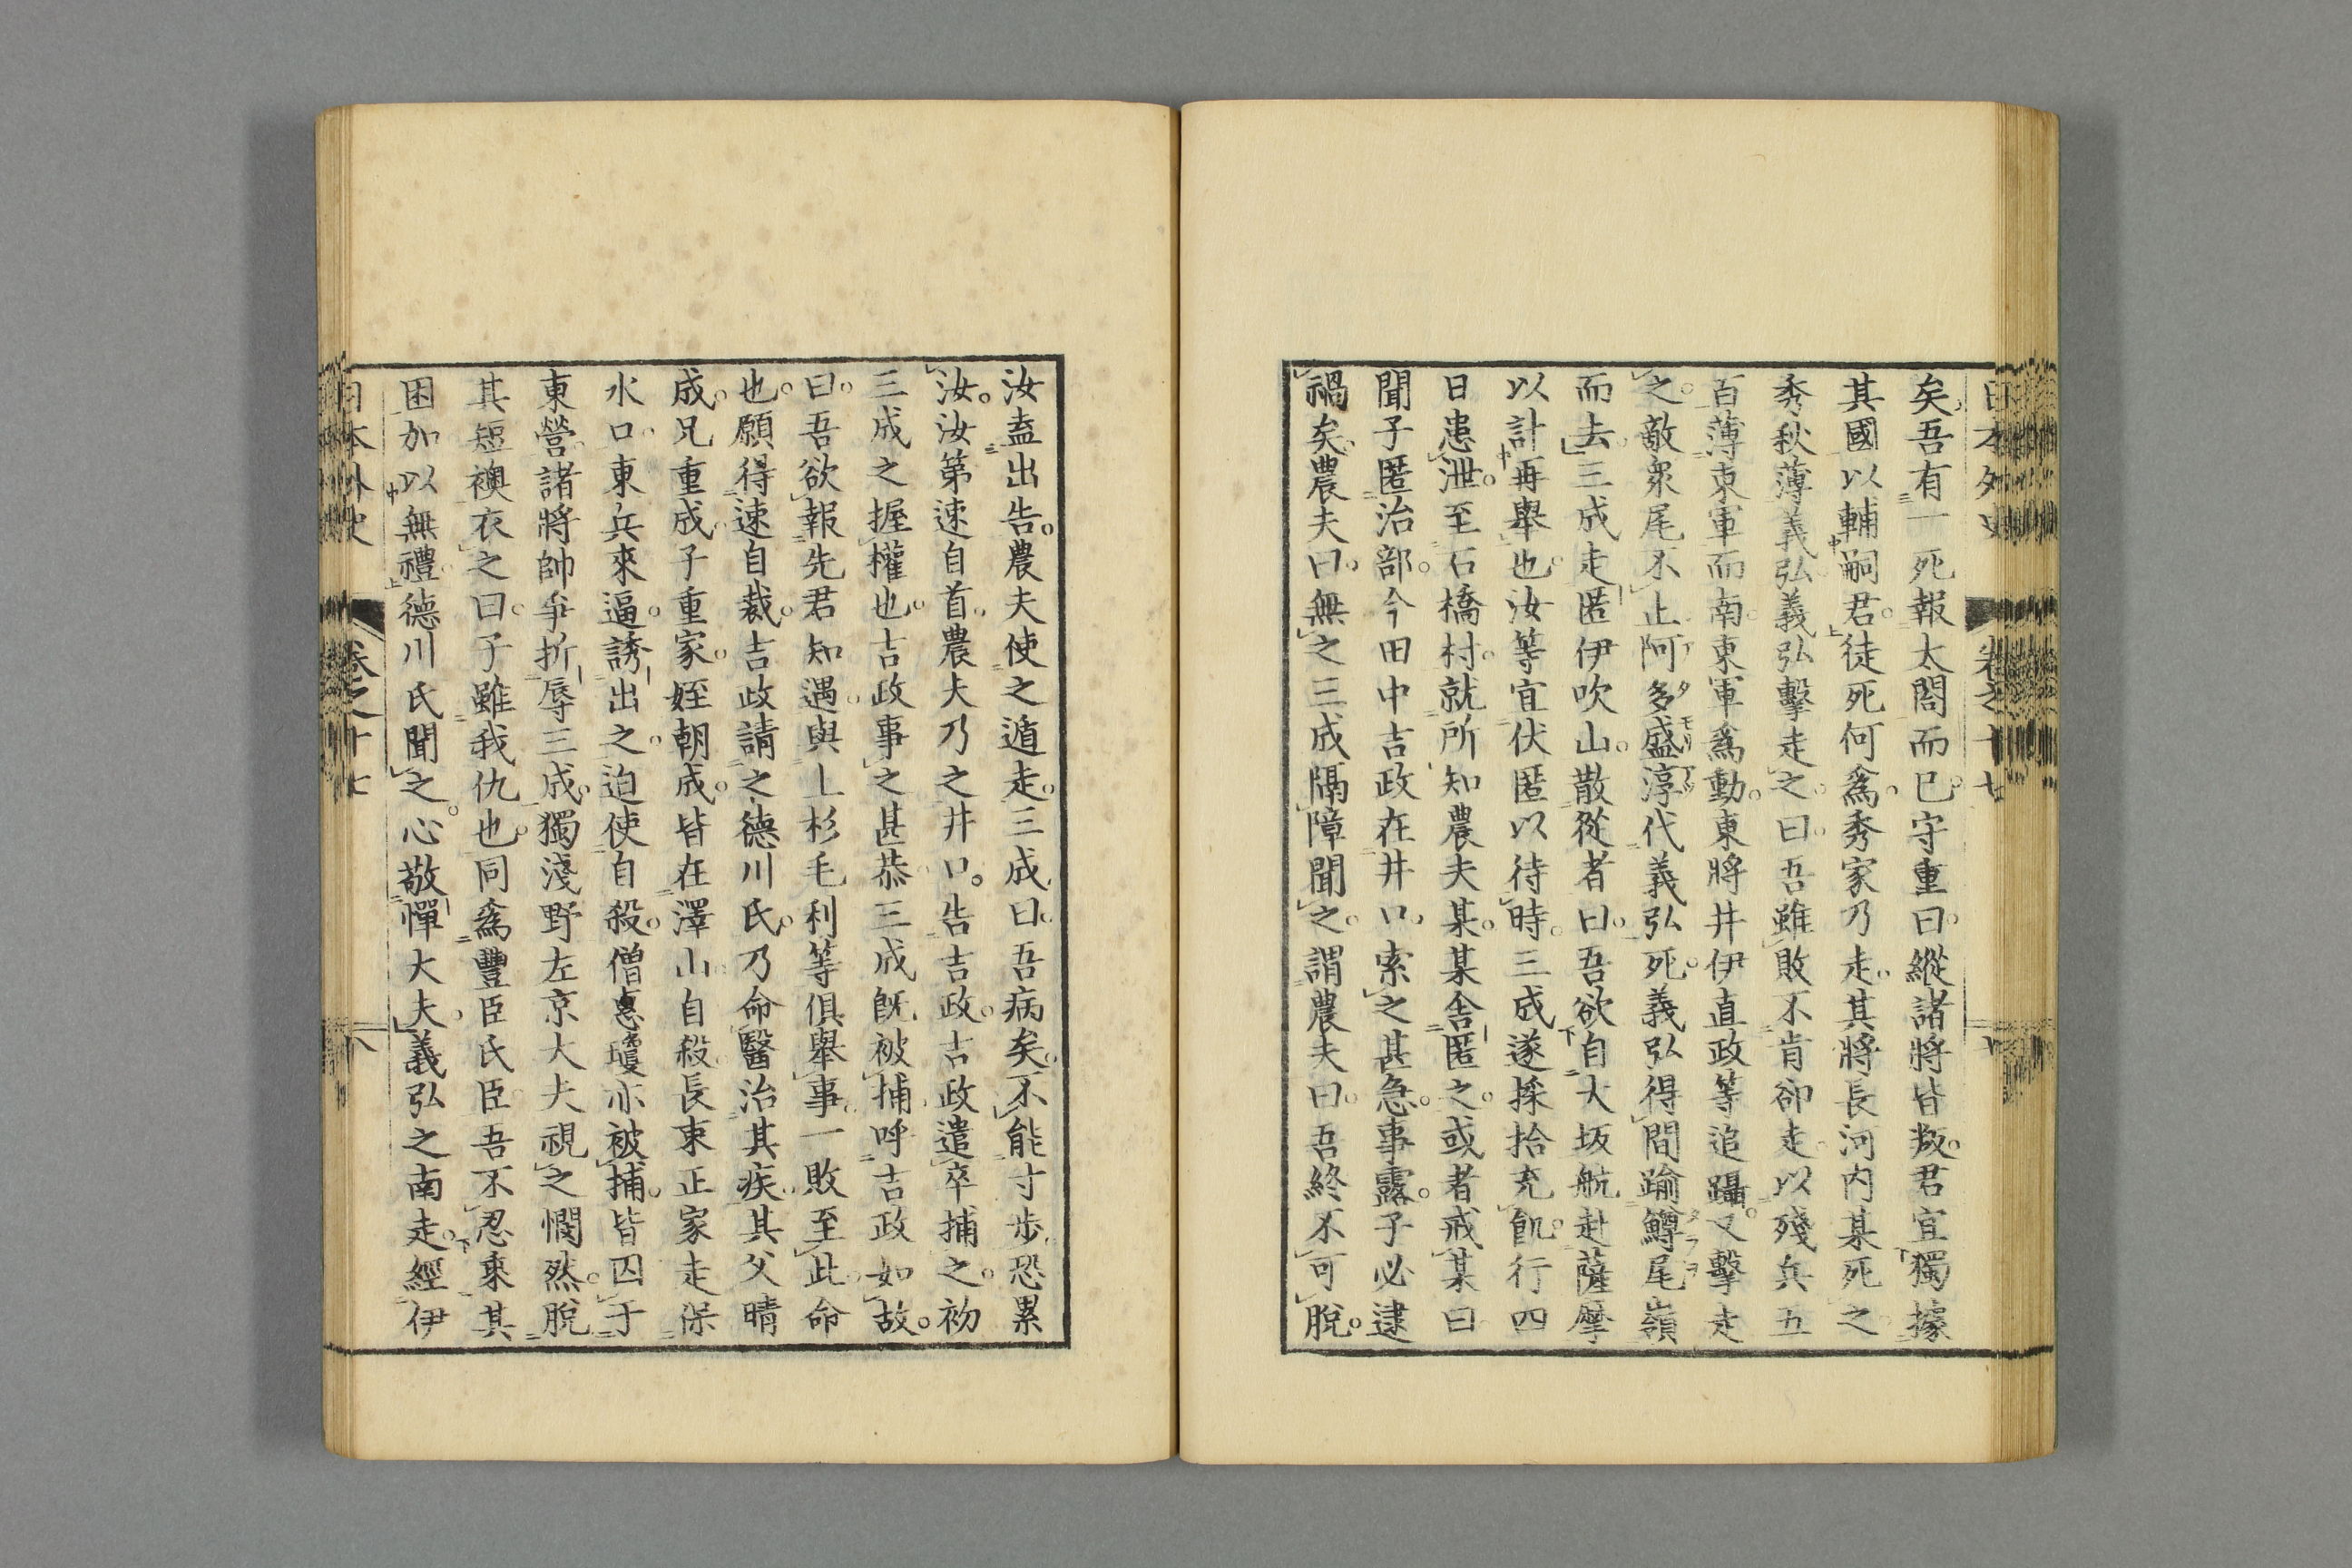 日本外史 卷之十七
矣吾有一死報太閤而已守重曰縱諸將皆叛君宜獨據
其國以輔嗣君徒死何爲秀家乃走其將長河内某死之
秀秋薄義弘義弘擊走之曰吾雖敗不肯卻走以殘兵五
百薄東軍而南東軍爲動東將井伊直政等追躡又擊走
之敵衆尾不止阿多盛淳代義弘死義弘得間踰鱒尾嶺
而去三成走匿伊吹山散從者曰吾欲自大坂航赴薩摩
以計再舉也汝等宜伏匿以待時三成遂採拾充飢行四
日患泄至石橋村就所知農夫某某舍匿之或者戒某曰
聞子匿治部今田中吉政在井口索之甚急事露子必逮
禍矣農夫曰無之三成隔障聞之謂農夫曰吾終不可脫
汝盍出告農夫使之遁走三成曰吾病矣不能寸步恐累
汝汝第速自首農夫乃之井口告吉政吉政遣卒捕之初
三成之握權也吉政事之甚恭三成既被捕呼吉政如故
曰吾欲報先君知遇與上杉毛利等俱舉事一敗至此命
也願得速自裁吉政請之德川氏乃命醫治其疾其父晴
成兄重成子重家姪朝成皆在澤山自殺長束正家走保
水口東兵來逼誘出之迫使自殺僧惠瓊亦被捕皆囚于
東營諸將帥爭折辱三成獨淺野左京大夫視之憫然脫
其短襖衣之曰子雖我仇也同爲豐臣氏臣吾不忍乘其
困加以無禮德川氏聞之心敬憚大夫義弘之南走經伊
日本外史 卷之十七 六